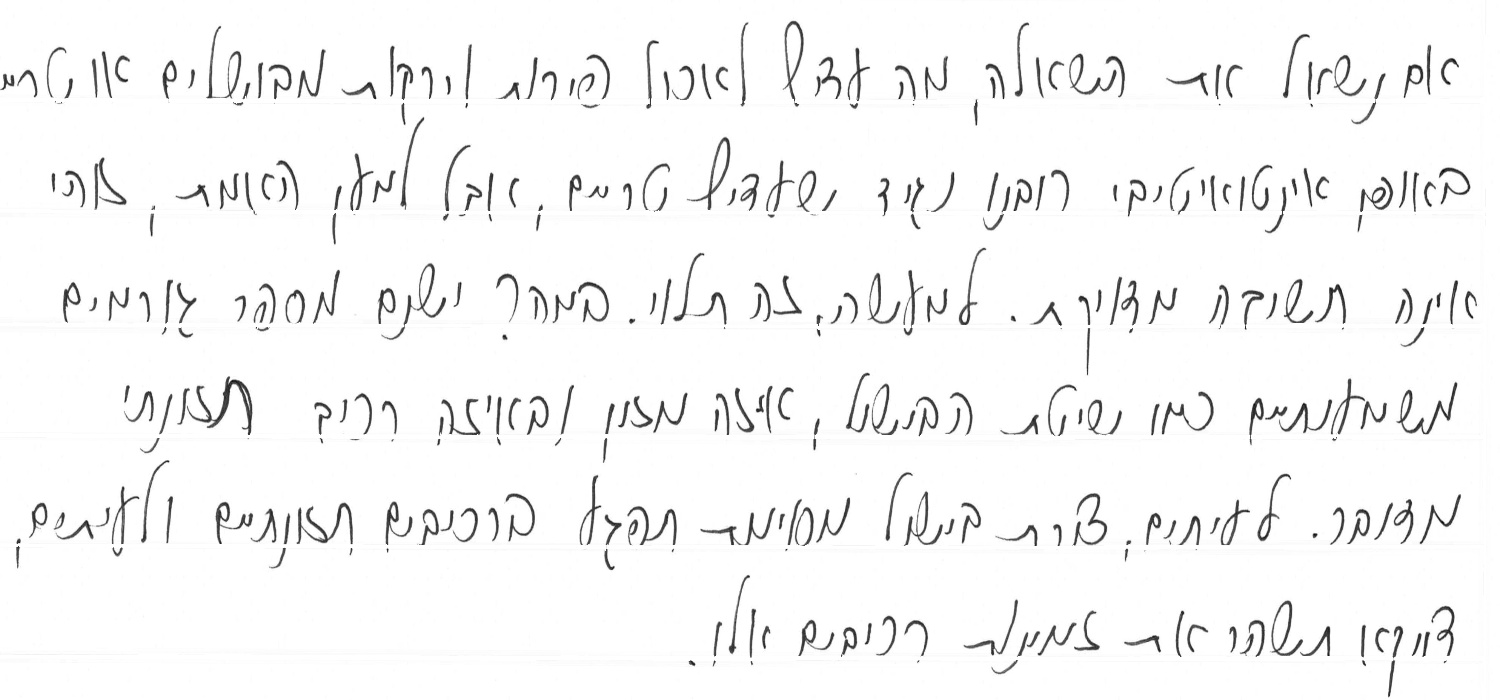 אם נשאל את השאלה, מה עדיף לאכול פירות וירקות מבושלים או טריים
באופן אינטואיטיבי רובנו נגיד שעדיף טריים, אבל למען האמת, זוהי
אינה תשובה מדויקת. למעשה, זה תלוי. במה? ישנם מספר גורמים
משמעותיים כמו שיטת הבישול, איזה מזון ובאיזה רכיב תזונתי
מדובר. לעיתים, צורת בישול מסוימת תפגע ברכיבים תזונתיים ולעיתים,
דווקא תשפר את זמינות רכיבים אלו.